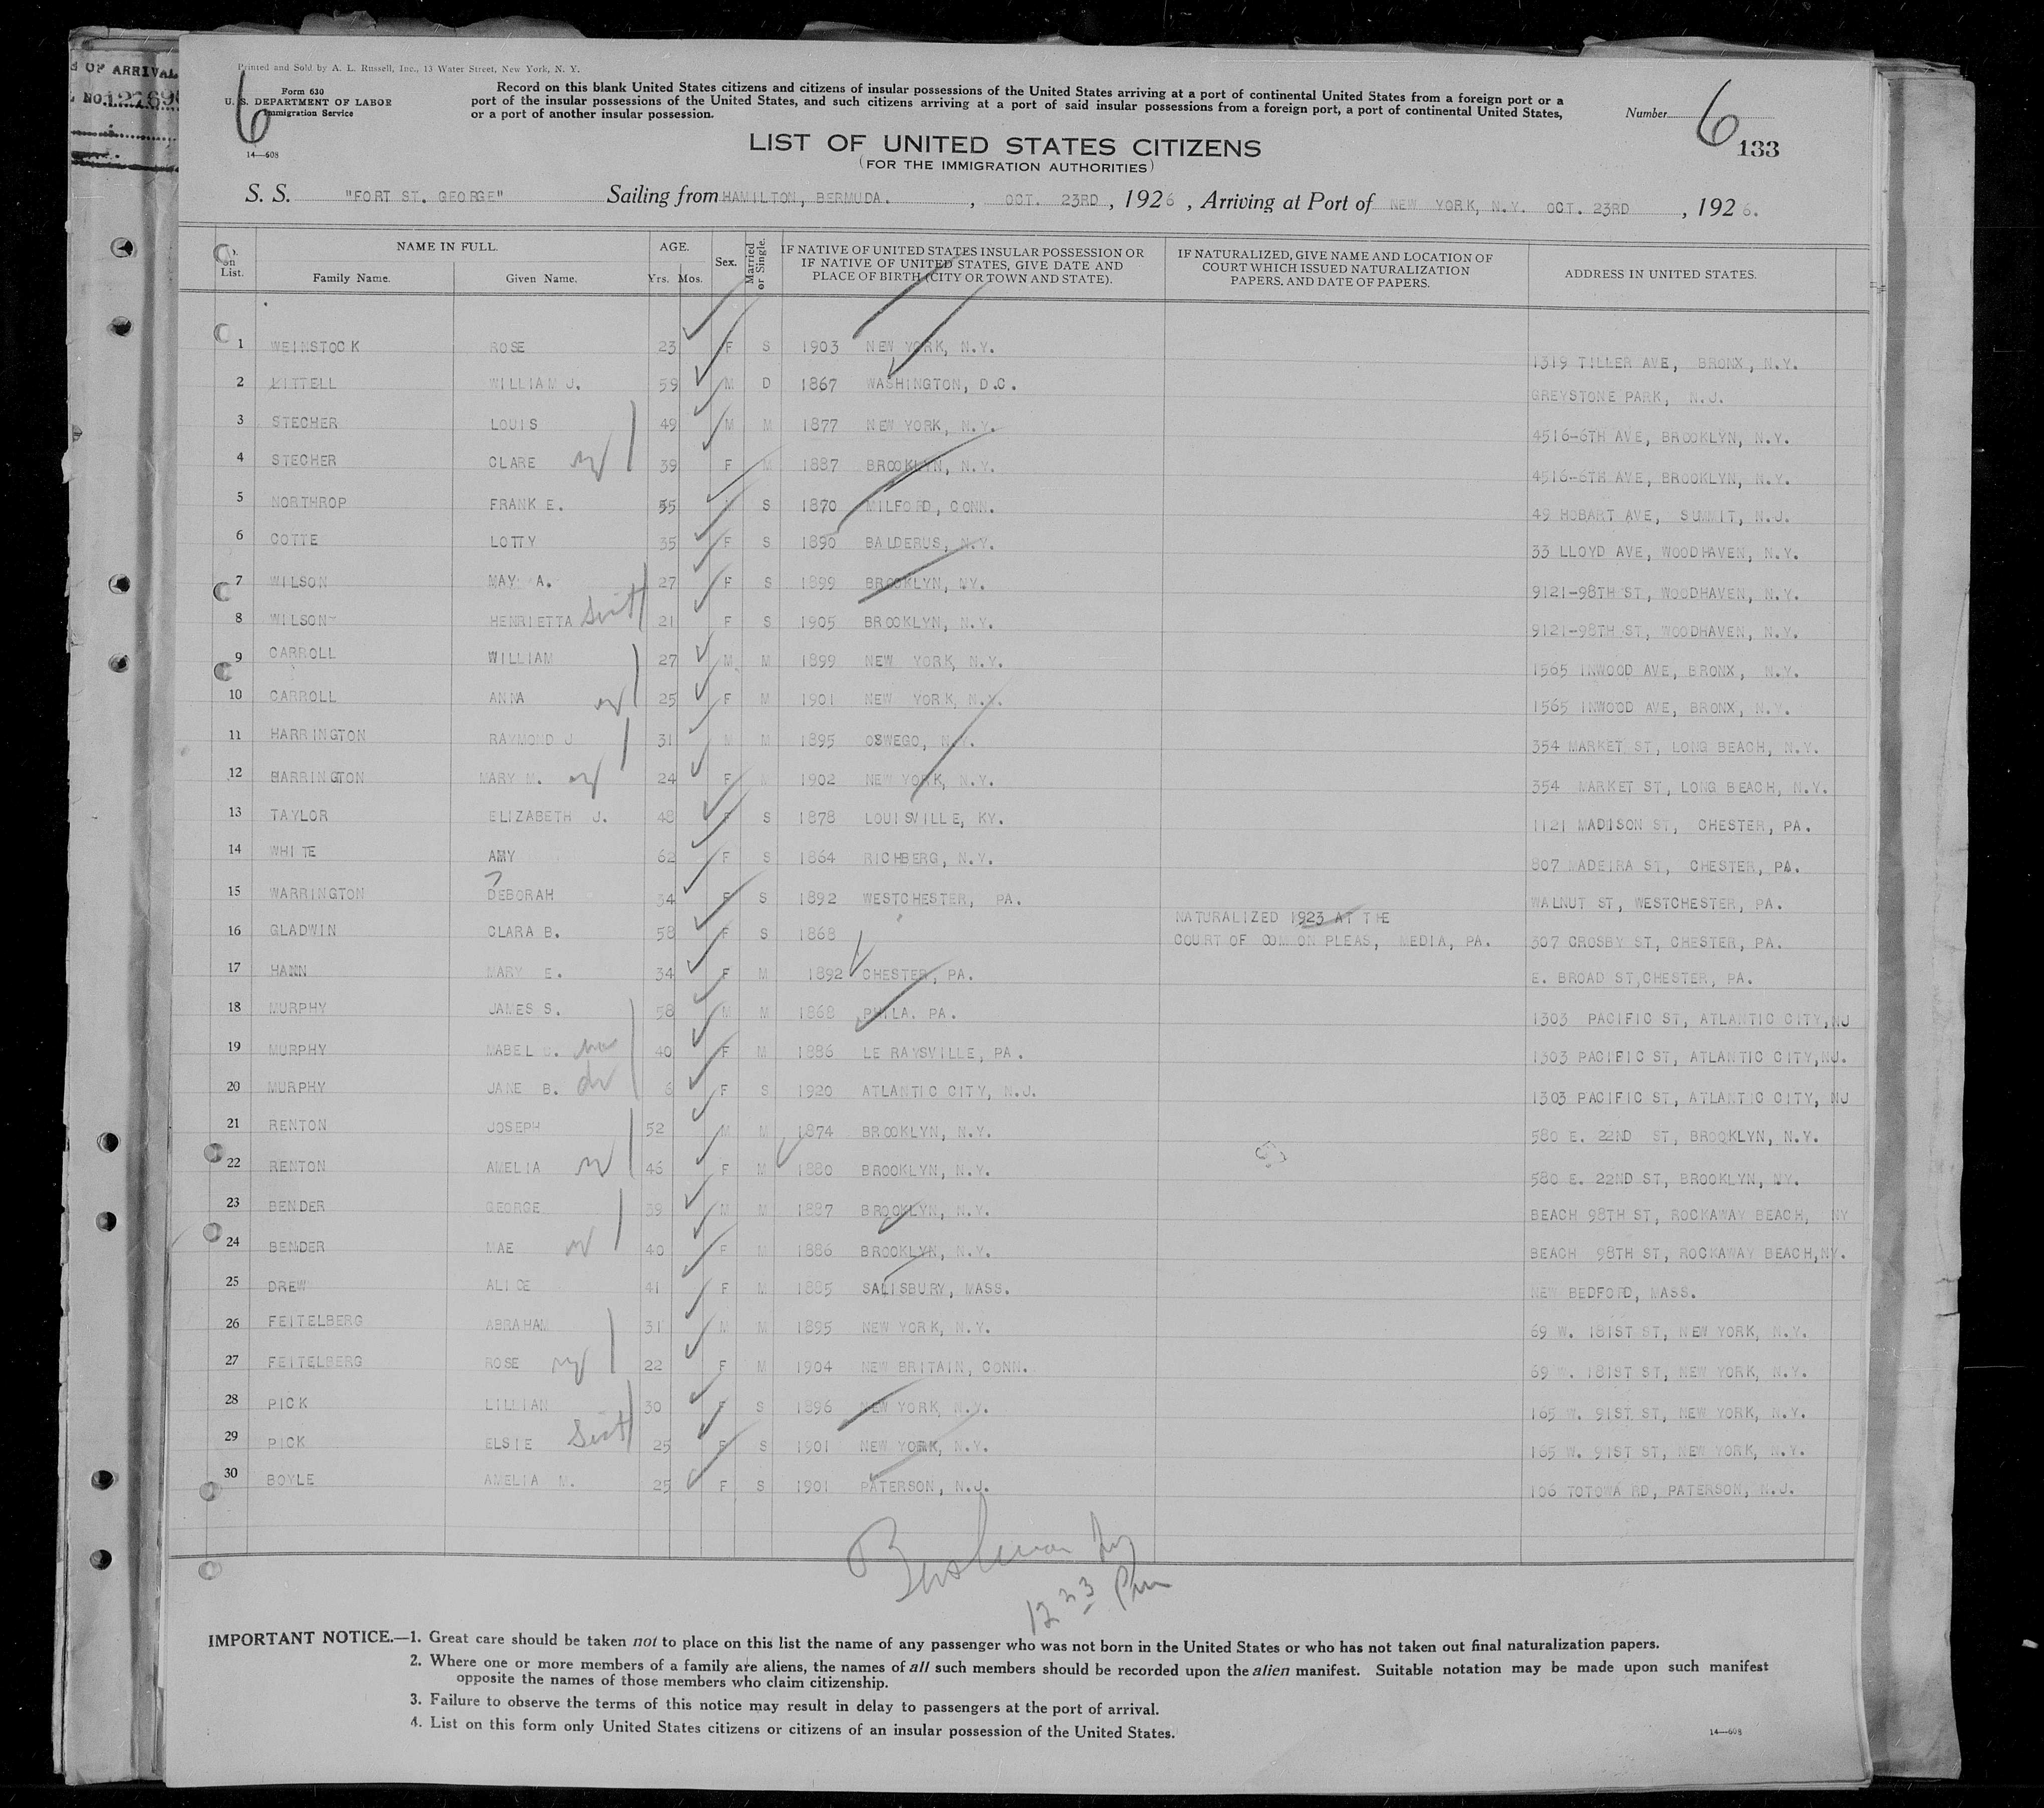 OF ARRIVAL
NO.
Printed and Sold by A. L. Russell, Inc., 13 Water Street, New York, N. Y.
Form 630
U. S. DEPARTMENT OF LABOR
Immigration Service
14—608
6
Record on this blank United States citizens and citizens of insular possessions of the United States arriving at a port of continental United States from a foreign port or a
port of the insular possessions of the United States, and such citizens arriving at a port of said insular possessions from a foreign port, a port of continental United States,
or a port of another insular possession.
Number 6
133
LIST OF UNITED STATES CITIZENS
(FOR THE IMMIGRATION AUTHORITIES)
S. S. "FORT ST. GEORGE" Sailing from HAMILTON, BERMUDA. , OCT. 23RD , 1926 , Arriving at Port of NEW YORK, N.Y. OCT. 23RD , 1926.
No. on List. NAME IN FULL. Family Name. Given Name. AGE. Yrs. Mos. Sex. Married or Single. IF NATIVE OF UNITED STATES INSULAR POSSESSION OR IF NATIVE OF UNITED STATES, GIVE DATE AND PLACE OF BIRTH (CITY OR TOWN AND STATE). IF NATURALIZED, GIVE NAME AND LOCATION OF COURT WHICH ISSUED NATURALIZATION PAPERS, AND DATE OF PAPERS. ADDRESS IN UNITED STATES.
1 WEINSTOCK ROSE 23 F S 1903 NEW YORK, N.Y. 1319 TILLER AVE, BRONX, N.Y.
2 KITTELL WILLIAM J. 59 M D 1867 WASHINGTON, D.C. GREYSTONE PARK, N.J.
3 STECHER LOUIS 49 M M 1877 NEW YORK, N.Y. 4516-6TH AVE, BROOKLYN, N.Y.
4 STECHER CLARE 39 F M 1887 BROOKLYN, N.Y. 4516-6TH AVE, BROOKLYN, N.Y.
5 NORTHROP FRANK E. 55 M S 1870 MILFORD, CONN. 49 HOBART AVE, SUMMIT, N.J.
6 COTTE LOTTY 35 F S 1890 BALDERUS, N.Y. 33 LLOYD AVE, WOODHAVEN, N.Y.
7 WILSON MAY A. 27 F S 1899 BROOKLYN, NY. 9121-98TH ST, WOODHAVEN, N.Y.
8 WILSON HENRIETTA Sist 21 F S 1905 BROOKLYN, N.Y. 9121-98TH ST, WOODHAVEN, N.Y.
9 CARROLL WILLIAM 27 M M 1899 NEW YORK, N.Y. 1565 INWOOD AVE, BRONX, N.Y.
10 CARROLL ANNA 25 F M 1901 NEW YORK, N.Y. 1565 INWOOD AVE, BRONX, N.Y.
11 HARRINGTON RAYMOND J 31 M M 1895 OSWEGO, N.Y. 354 MARKET ST, LONG BEACH, N.Y.
12 HARRINGTON MARY M. 24 F M 1902 NEW YORK, N.Y. 354 MARKET ST, LONG BEACH, N.Y.
13 TAYLOR ELIZABETH J. 48 F S 1878 LOUISVILLE, KY. 1121 MADISON ST, CHESTER, PA.
14 WHITE AMY 62 F S 1864 RICHBERG, N.Y. 807 MADEIRA ST, CHESTER, PA.
15 WARRINGTON DEBORAH 34 F S 1892 WESTCHESTER, PA. WALNUT ST, WESTCHESTER, PA.
16 GLADWIN CLARA B. 58 F S 1868 NATURALIZED 1923 AT THE COURT OF COMMON PLEAS, MEDIA, PA. 307 CROSBY ST, CHESTER, PA.
17 HANN MARY E. 34 F M 1892 CHESTER, PA. E. BROAD ST, CHESTER, PA.
18 MURPHY JAMES S. 58 M M 1868 PHILA. PA. 1303 PACIFIC ST, ATLANTIC CITY, NJ
19 MURPHY MABEL 40 F M 1886 LE RAYSVILLE, PA. 1303 PACIFIC ST, ATLANTIC CITY, NJ.
20 MURPHY JANE B. 6 F S 1920 ATLANTIC CITY, N.J. 1303 PACIFIC ST, ATLANTIC CITY, NJ
21 RENTON JOSEPH 52 M M 1874 BROOKLYN, N.Y. 580 E. 22ND ST, BROOKLYN, N.Y.
22 RENTON AMELIA 46 F M 1880 BROOKLYN, N.Y. 580 E. 22ND ST, BROOKLYN, NY.
23 BENDER GEORGE 39 M M 1887 BROOKLYN, N.Y. BEACH 98TH ST, ROCKAWAY BEACH, NY
24 BENDER MAE 40 F M 1886 BROOKLYN, N.Y. BEACH 98TH ST, ROCKAWAY BEACH, NY.
25 DREW ALICE 41 F M 1885 SALISBURY, MASS. NEW BEDFORD, MASS.
26 FEITELBERG ABRAHAM 31 M M 1895 NEW YORK, N.Y. 69 W. 181ST ST, NEW YORK, N.Y.
27 FEITELBERG ROSE 22 F M 1904 NEW BRITAIN, CONN. 69 W. 181ST ST, NEW YORK, N.Y.
28 PICK LILLIAN 30 F S 1896 NEW YORK, N.Y. 165 W. 91ST ST, NEW YORK, N.Y.
29 PICK ELSIE Sist 25 F S 1901 NEW YORK, N.Y. 165 W. 91ST ST, NEW YORK, N.Y.
30 BOYLE AMELIA M. 25 F S 1901 PATERSON, N.J. 106 TOTOWA RD, PATERSON, N.J.
12 33 Pm
IMPORTANT NOTICE.—1. Great care should be taken not to place on this list the name of any passenger who was not born in the United States or who has not taken out final naturalization papers.
2. Where one or more members of a family are aliens, the names of all such members should be recorded upon the alien manifest. Suitable notation may be made upon such manifest
opposite the names of those members who claim citizenship.
3. Failure to observe the terms of this notice may result in delay to passengers at the port of arrival.
4. List on this form only United States citizens or citizens of an insular possession of the United States.
14—608